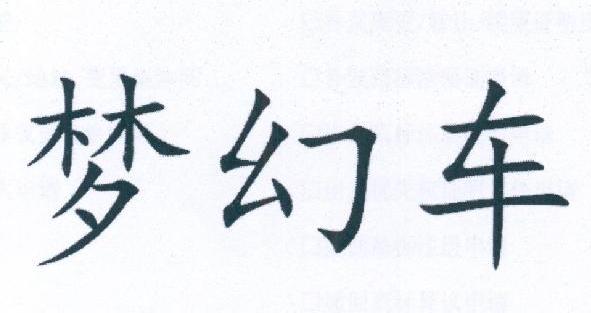 梦幻车